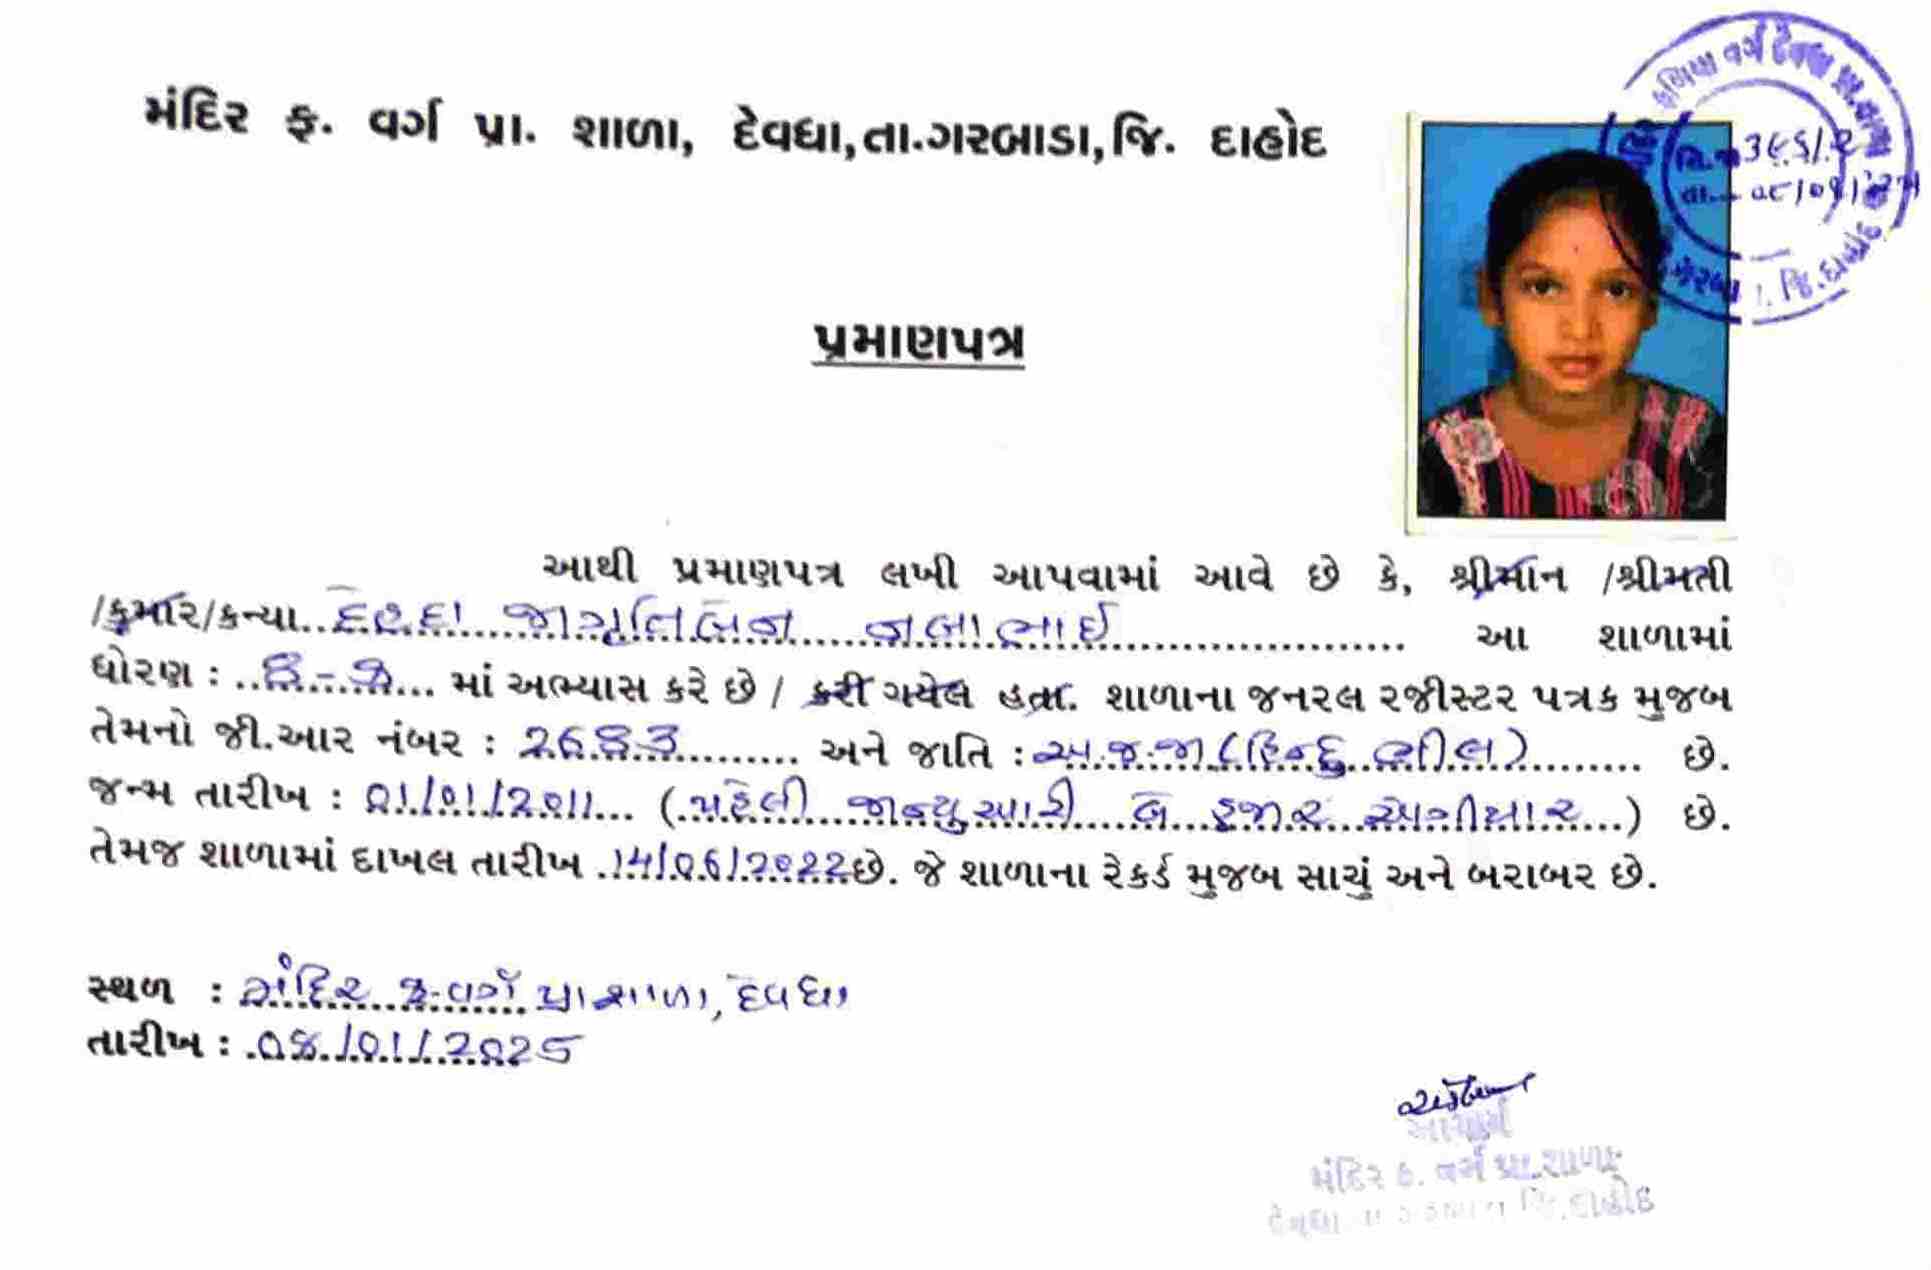 મંદિર ફ. વર્ગ પ્રા. શાળા, દેવધા,તા.ગરબાડા,જિ. દાહોદ
વર્ગ દેવધા પ્રા.શાળા
જિ.દાહોદ
પ્રમાણપત્ર
આથી પ્રમાણપત્ર લખી આપવામાં આવે છે કે, શ્રીમાન /શ્રીમતી
/કુમાર/કન્યા.. દેહદા જાગૃતિબેન નબાભાઈ આ શાળામાં
ધોરણ : માં અભ્યાસ કરે છે / કરી ગયેલ હતા. શાળાના જનરલ રજીસ્ટર પત્રક મુજબ
તેમનો જી.આર નંબર : અને જાતિ : અ.જ.જા (હિન્દુ ભીલ) છે.
જન્મ તારીખ : 01/01/2011 (પહેલી જાન્યુઆરી બે હજાર અગીયાર) છે.
તેમજ શાળામાં દાખલ તારીખ 14/06/2022 છે. જે શાળાના રેકર્ડ મુજબ સાચું અને બરાબર છે.
સ્થળ : મંદિર ફ.વર્ગ પ્રા શાળા, દેવધા
તારીખ : 08/01/2025
આચાર્ય
મંદિર ફ. વર્ગ પ્રા.શાળા
દેવધા જિ.દાહોદ